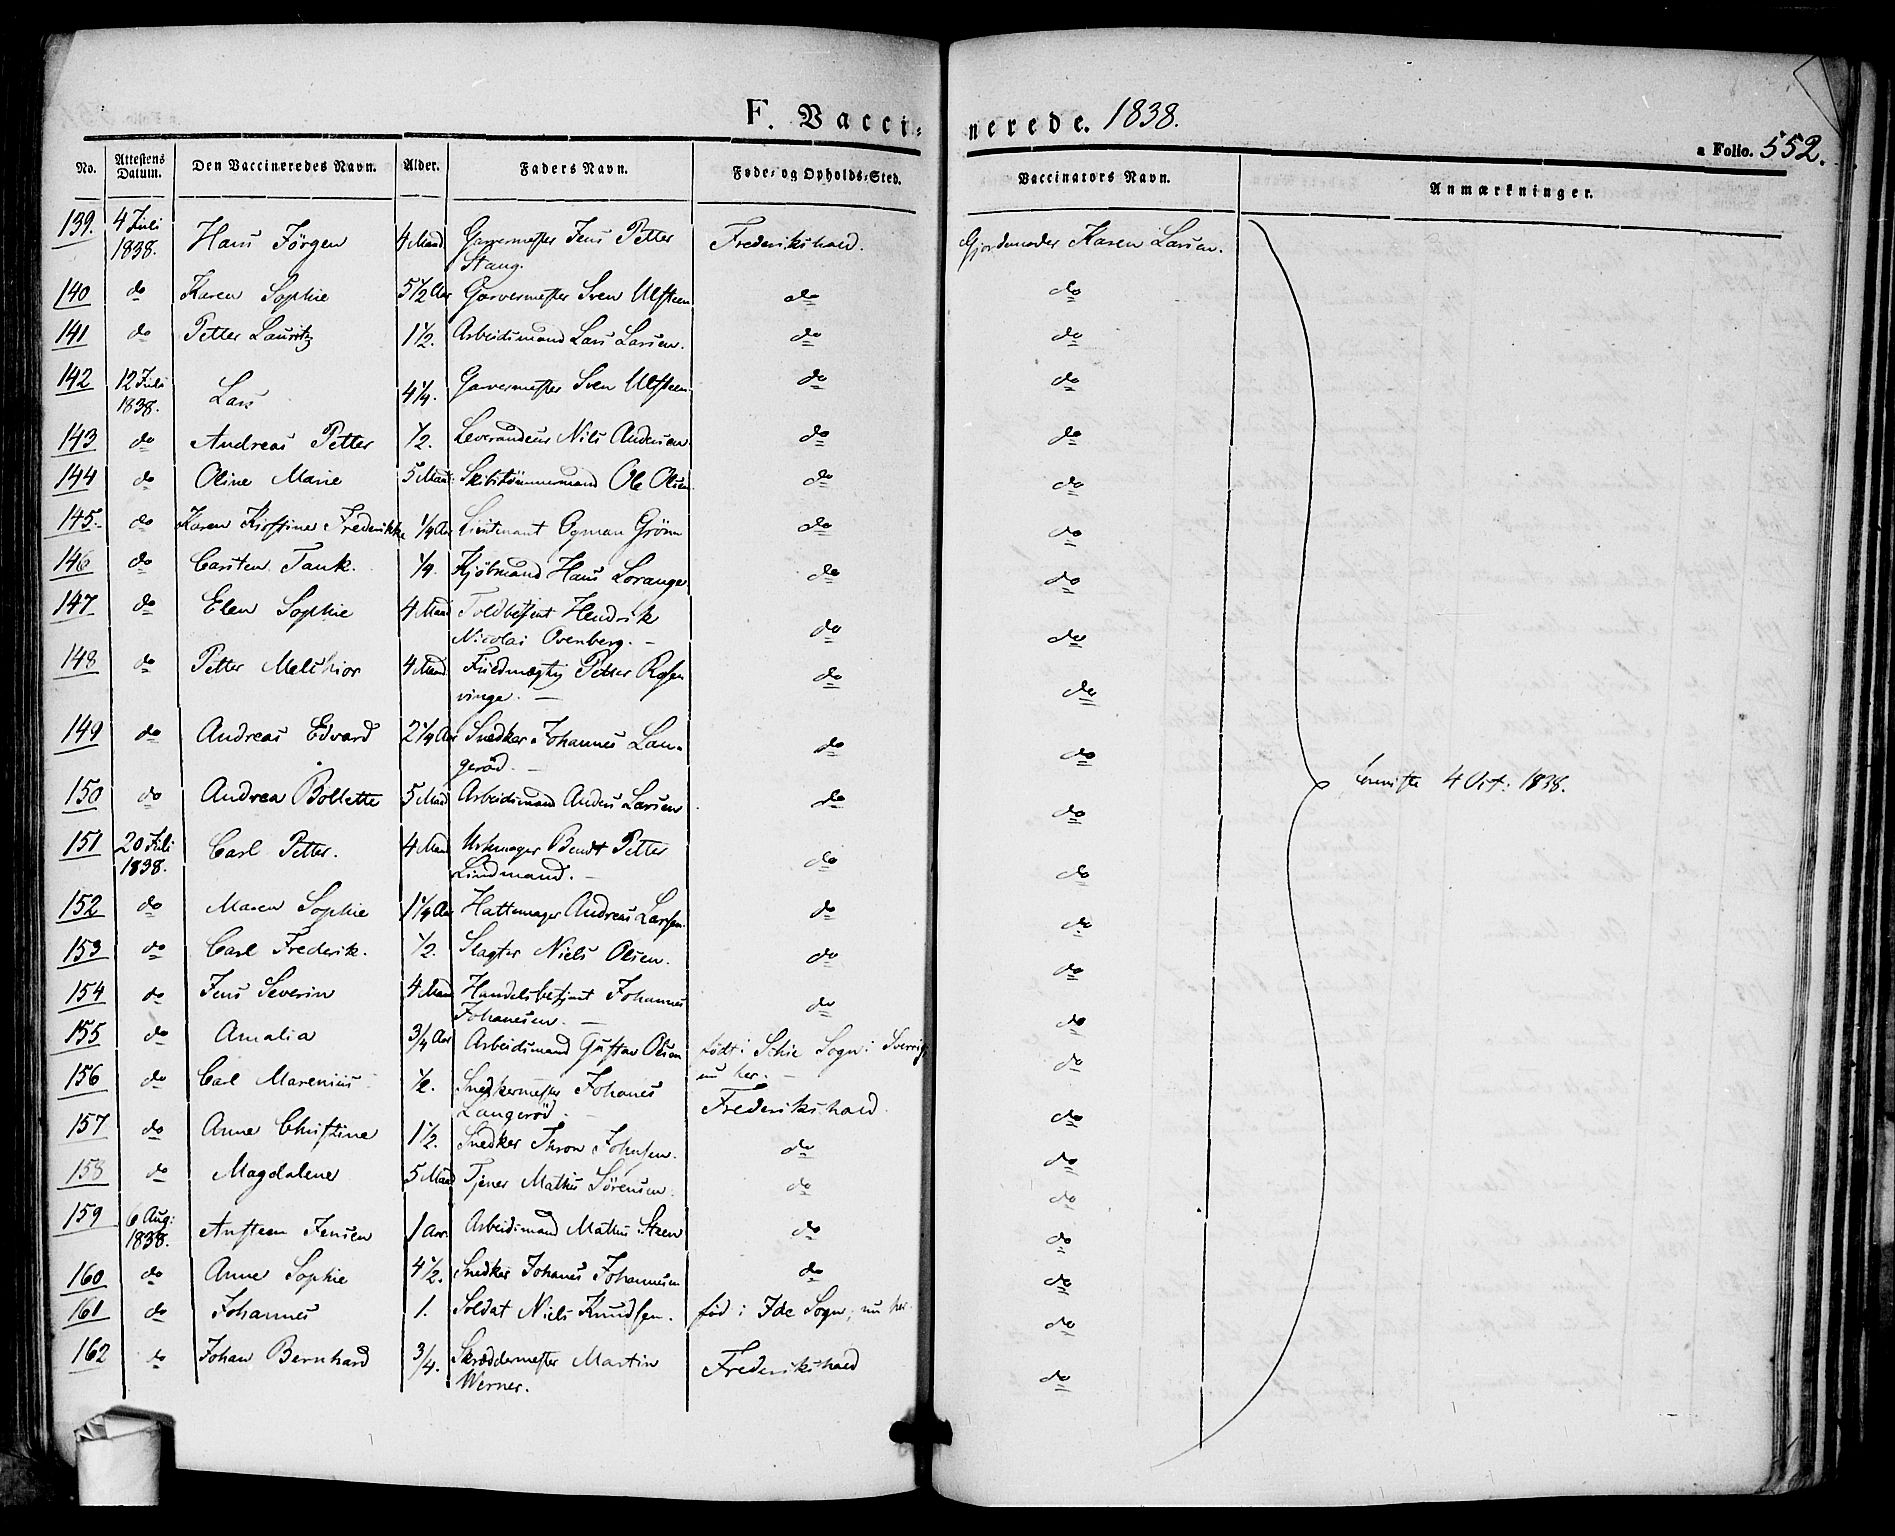 F. Vaccinerede. 1838.
a Folio. 552.
No. Attestens Datum. Den Vaccineredes Navn. Alder. Faders Navn. Føde- og Opholds-Sted. Vaccinators Navn. Anmærkninger.
139. 4 Juli 1838. Hans Jørgen 4 Maad Garvermester Jens Petter Stang. Frederikshald. Gjordemoder Karen Larsen.
140 do Karen Sophie 5 1/2 Aar Garvermester Sven Ulfsteen do do
141 do Petter Lauritz 1 1/2. Arbeidsmand Lars Larsen. do do
142 12 Juli 1838. Lars 4 1/4. Garvermester Sven Ulfsteen do do
143 do Andreas Petter 1/2. Leverandeur Nils Andersen do do
144 do Oline Marie 5 Maad. Skibstömmermand Ole Olsen. do do
145. do Karen Kirstine Frederikke 1/4 Aar Lieutenant Ogman Grönn do do
146 do Carsten Tank. 1/4. Kjöbmand Hans Lorange. do do
147 do Elen Sophie 4 Maad Toldbetjent Hendrik Nicolai Ovenberg. – do do
148 do Petter Melchior 4 Maad Fuldmægtig Petter Rosenvinge. – do do
149 do Andreas Edvard 2 1/4 Aar Snedker Johannes Langeröd. – do do
150 do Andrea Bollette 5 Maad Arbeidsmand Anders Larsen do do
151 20 Juli 1838. Carl Petter. 4 Maad Urhmager Bendt Petter Lindmand. – do do
152 do Maren Sophie 1 1/4 Aar Hattemager Andreas Larsen. do do
153 do Carl Frederik. 1/2. Slagter Niels Olsen. do do
154 do Jens Severin 4 Maad Handelsbetjent Johannes Johanesen. – do do
155 do Amalia 3/4 Aar Arbeidsmand Gustav Olsen født i Schie Sogn i Sverrig nu her. – do
156 do Carl Marenius 1/2. Snedkermester Johanes Langeröd. – Frederikshald. do
157 do Anne Christine 1 1/2. Snedker Thron Johnsen. do do
158 do Magdalene 5 Maad Tjener Mathis Sörensen. do do
159 6 Aug: 1838. Ansteen Jensen 1 Aar. Arbeidsmand Mathis Steen do do
160 do Anne Sophie 4 1/2. Snedker Johanes Johannesen do do
161 do Johannes 1. Soldat Niels Knudsen. fød i Ide Sogn, nu her. do
162 do Johan Bernhard 3/4. Skreddermester Martin Werner. Frederikshald do
4 Oct: 1838.